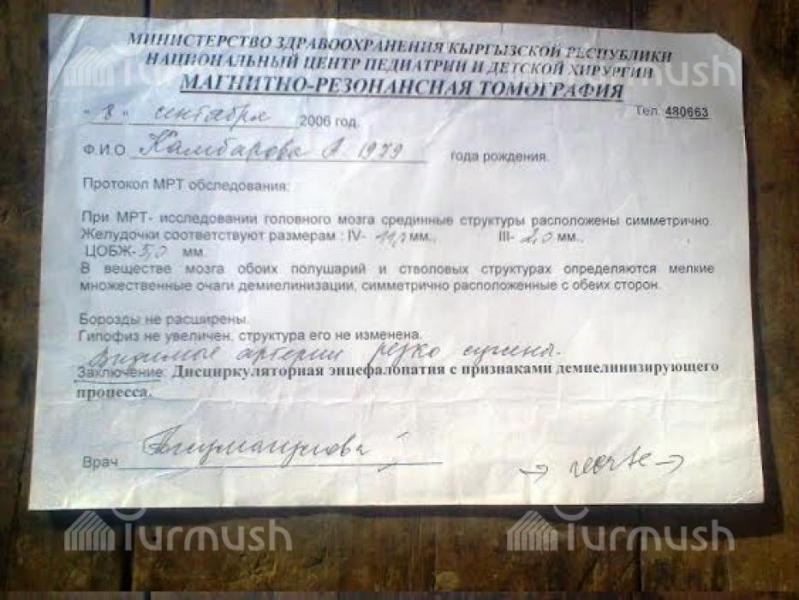 МИНИСТЕРСТВО ЗДРАВООХРАНЕНИЯ КЫРГЫЗСКОЙ РЕСПУБЛИКИ
НАЦИОНАЛЬНЫЙ ЦЕНТР ПЕДИАТРИИ И ДЕТСКОЙ ХИРУРГИИ
МАГНИТНО-РЕЗОНАНСНАЯ ТОМОГРАФИЯ
"8" сентября 2006 год. Тел. 480663
Ф.И.О. Камбарова А 1979 года рождения.
Протокол МРТ обследования:
При МРТ- исследовании головного мозга срединные структуры расположены симметрично.
Желудочки соответствуют размерам : IV- 11,0 мм., III- 2,0 мм.,
ЦОБЖ- 5,0 мм.
В веществе мозга обоих полушарий и стволовых структурах определяются мелкие
множественные очаги демиелинизации, симметрично расположенные с обеих сторон.
Борозды не расширены.
Гипофиз не увеличен, структура его не изменена.
Видимые артерии резко сужены.
Заключение: Дисциркуляторная энцефалопатия с признаками демиелинизирующего
процесса.
Врач
Turmush
Turmush
Turmush
Turmush